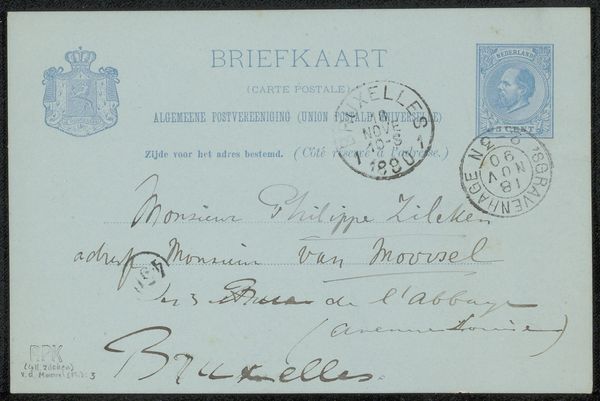 BRIEFKAART
(CARTE POSTALE)
ALGEMEENE POSTVEREENIGING (UNION POSTALE UNIVERSELLE)
Zijde voor het adres bestemd. (Côté réservé à l'adresse.)
NEDERLAND
5 CENT
BRUXELLES
NOVE
1890
'SGRAVENHAGE
18
NOV
90
Monsieur Philippe Zilcken
adress Monsieur van Moorsel
3 de l'Abbaye
(avenue Louise)
Bruxelles.
RPK
(coll. Zilcken)
3